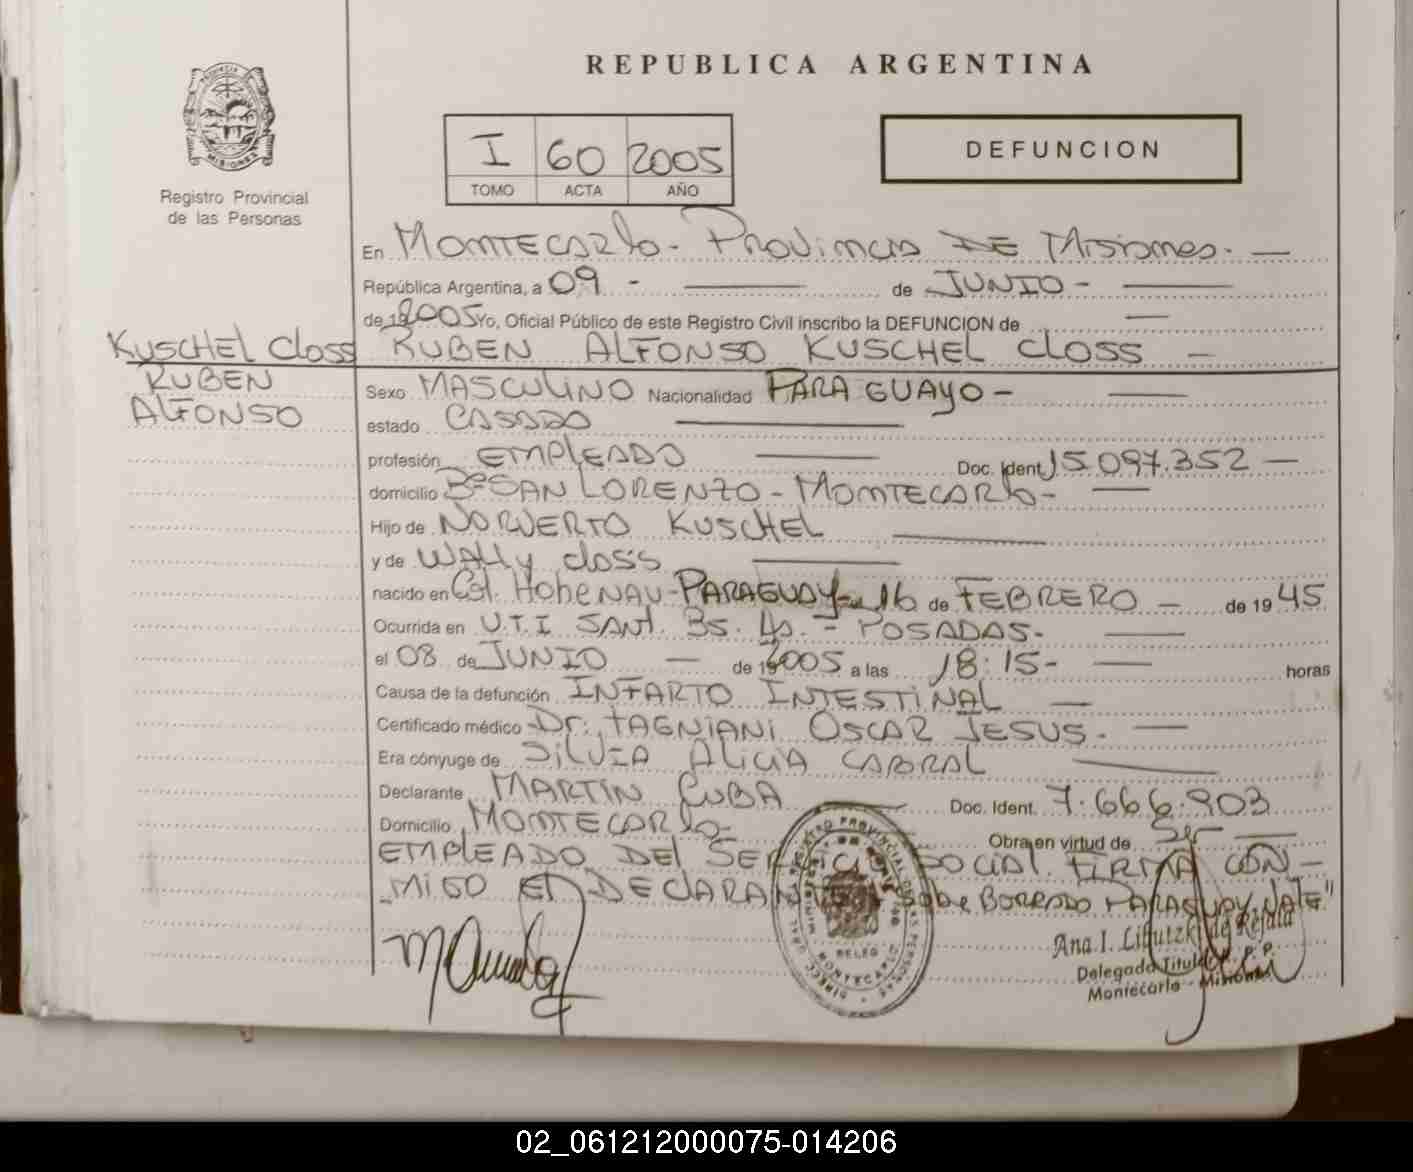 REPUBLICA ARGENTINA
PROVINCIA DE MISIONES
Registro Provincial
de las Personas
I 60 2005
TOMO ACTA AÑO
DEFUNCION
En MONTECARLO - PROVINCIA DE MISIONES. —
República Argentina, a 09 - — de JUNIO - —
de 2005 Yo, Oficial Público de este Registro Civil inscribo la DEFUNCION de —
KUSCHEL CLOSS RUBEN ALFONSO KUSCHEL CLOSS —
RUBEN
ALFONSO
Sexo MASCULINO Nacionalidad PARAGUAYO - —
estado CASADO —
profesión EMPLEADO — Doc. Ident 15.097.352 —
domicilio Bº SAN LORENZO - MONTECARLO - —
Hijo de NORVERTO KUSCHEL —
y de WALLY CLOSS —
nacido en Col. HOHENAU - PARAGUAY - 16 de FEBRERO — de 1945
Ocurrida en U.T.I SANT. Bs. As. - POSADAS. —
el 08 de JUNIO — de 2005 a las 18:15 - — horas
Causa de la defunción INFARTO INTESTINAL —
Certificado médico Dr. TAGNIANI OSCAR JESUS. —
Era cónyuge de SILVIA ALICIA CABRAL —
Declarante MARTIN CUBA — Doc. Ident. 7.666.903
Domicilio MONTECARLO - Obra en virtud de Ser —
EMPLEADO DEL SERVICIO SOCIAL. FIRMA CON -
MIGO EL DECLARANTE. "Sobre BORRADO PARAGUAY VALE"
REGISTRO PROVINCIAL DE LAS PERSONAS
DELEG
MONTECARLO
Ana I. de Rejala
Delegada Titular
Montecarlo - Misiones
02_061212000075-014206